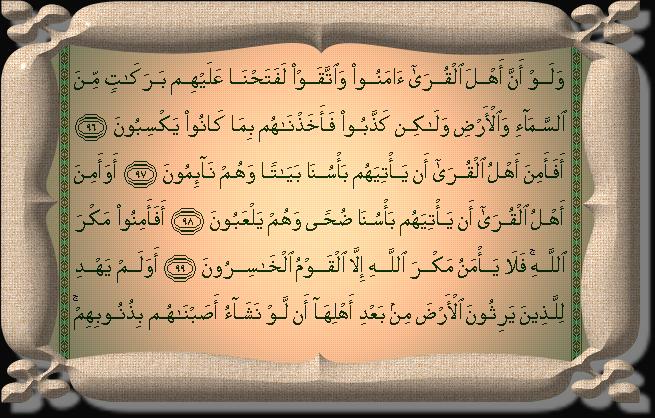 وَلَوْ أَنَّ أَهْلَ ٱلْقُرَىٰٓ ءَامَنُوا۟ وَٱتَّقَوْا۟ لَفَتَحْنَا عَلَيْهِم بَرَكَٰتٍ مِّنَ
ٱلسَّمَآءِ وَٱلْأَرْضِ وَلَٰكِن كَذَّبُوا۟ فَأَخَذْنَٰهُم بِمَا كَانُوا۟ يَكْسِبُونَ ٩٦
أَفَأَمِنَ أَهْلُ ٱلْقُرَىٰٓ أَن يَأْتِيَهُم بَأْسُنَا بَيَٰتًا وَهُمْ نَآئِمُونَ ٩٧ أَوَأَمِنَ
أَهْلُ ٱلْقُرَىٰٓ أَن يَأْتِيَهُم بَأْسُنَا ضُحًى وَهُمْ يَلْعَبُونَ ٩٨ أَفَأَمِنُوا۟ مَكْرَ
ٱللَّهِ ۚ فَلَا يَأْمَنُ مَكْرَ ٱللَّهِ إِلَّا ٱلْقَوْمُ ٱلْخَٰسِرُونَ ٩٩ أَوَلَمْ يَهْدِ
لِلَّذِينَ يَرِثُونَ ٱلْأَرْضَ مِنۢ بَعْدِ أَهْلِهَآ أَن لَّوْ نَشَآءُ أَصَبْنَٰهُم بِذُنُوبِهِمْ ۚ